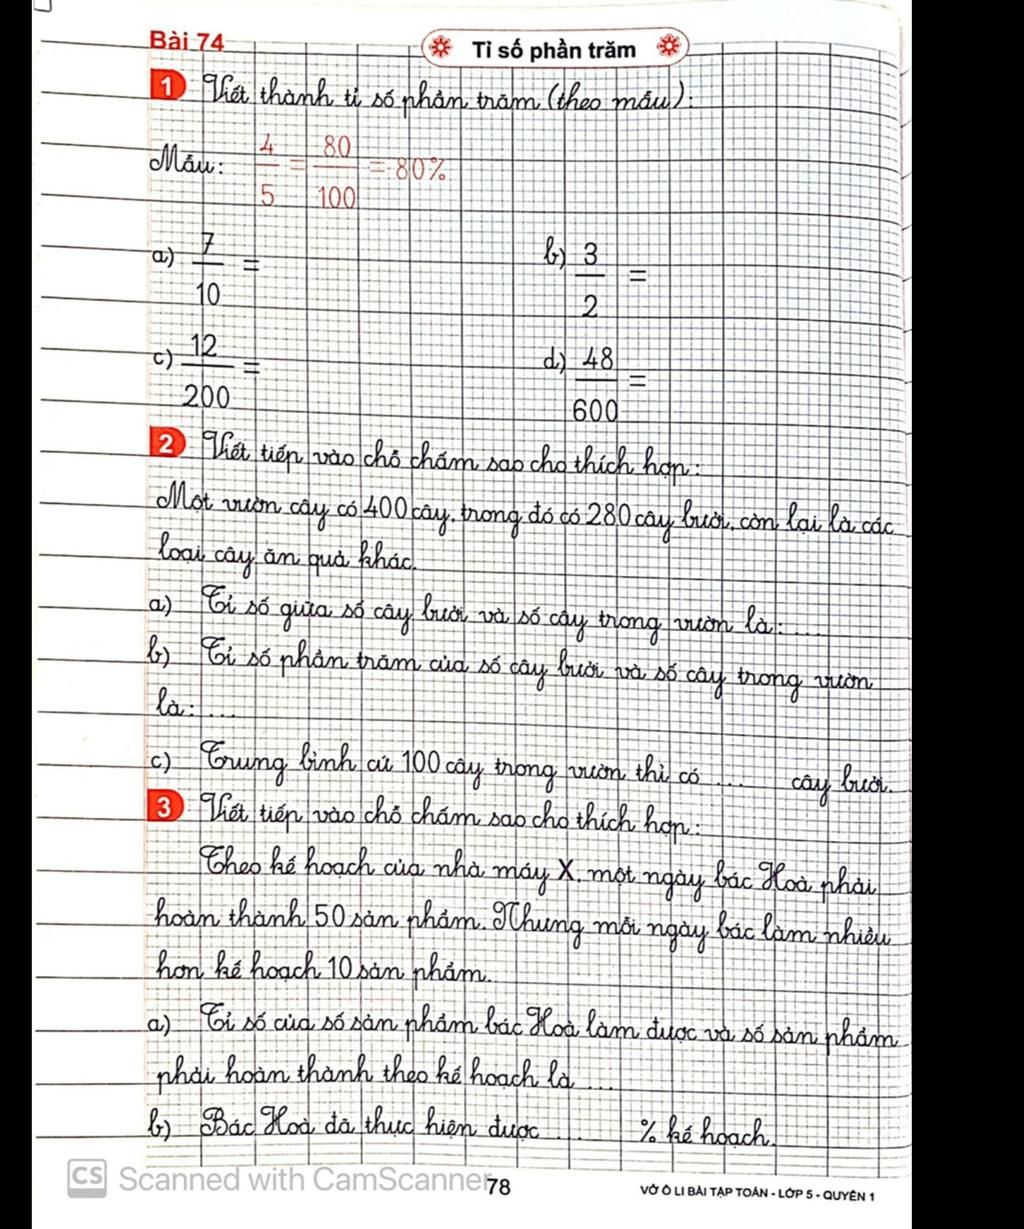 Bài 74
Tỉ số phần trăm
1 Viết thành tỉ số phần trăm (theo mẫu):
Mẫu: 4/5 = 80/100 = 80%
a) 7/10 = b) 3/2 =
c) 12/200 = d) 48/600 =
2 Viết tiếp vào chỗ chấm sao cho thích hợp:
Một vườn cây có 400 cây, trong đó có 280 cây bưởi, còn lại là các
loại cây ăn quả khác.
a) Tỉ số giữa số cây bưởi và số cây trong vườn là: ...
b) Tỉ số phần trăm của số cây bưởi và số cây trong vườn
là: ...
c) Trung bình cứ 100 cây trong vườn thì có ... cây bưởi.
3 Viết tiếp vào chỗ chấm sao cho thích hợp:
Theo kế hoạch của nhà máy X, một ngày bác Hoà phải
hoàn thành 50 sản phẩm. Nhưng mỗi ngày bác làm nhiều
hơn kế hoạch 10 sản phẩm.
a) Tỉ số của số sản phẩm bác Hoà làm được và số sản phẩm
phải hoàn thành theo kế hoạch là ...
b) Bác Hoà đã thực hiện được ... % kế hoạch.
CS Scanned with CamScanner
78
VỞ Ô LI BÀI TẬP TOÁN - LỚP 5 - QUYỂN 1